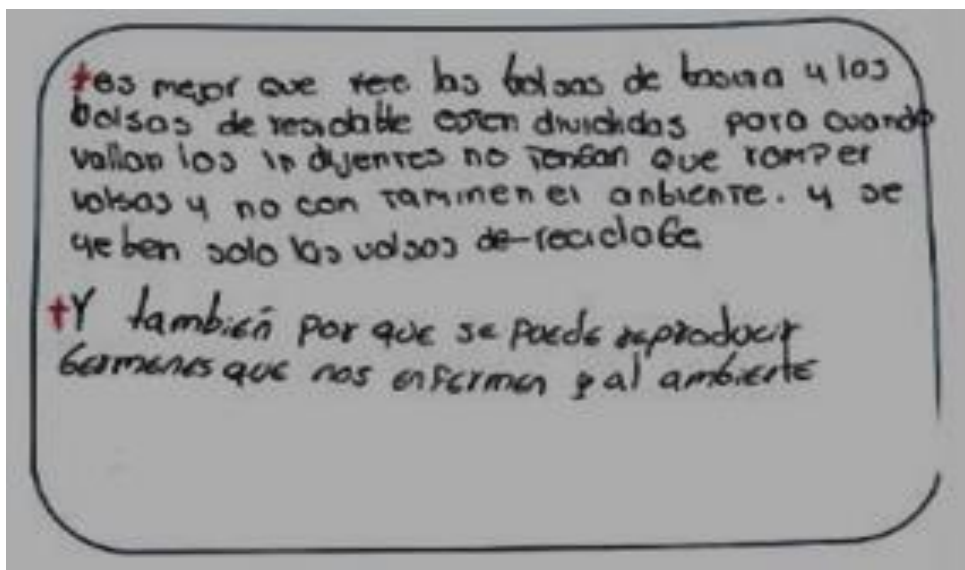 +es mejor que las bolsas de basura y los
bolsas de recidable esten divididas para cuando
vallan los indijentes no tengan que romper
volsas y no con taminen el anbiente. y se
yeben solo las volsas de-reciclage
+Y también por que se puede reproducir
Germenes que nos enfermen y al ambiente